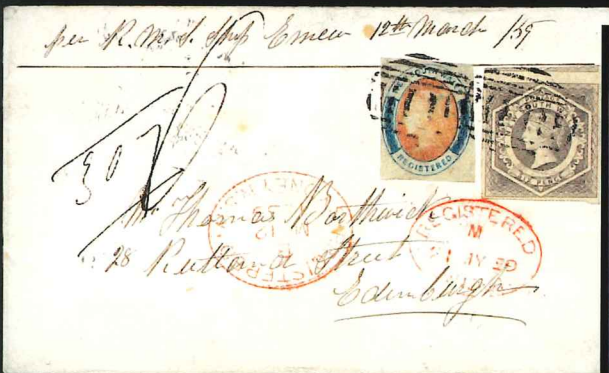 per R.M.S. Ship Emeu 12th March /59
307
REGISTERED
SOUTH WALES
SIX PENCE
Mr Thomas Borthwick
28 Rutland Street
Edinburgh
REGISTERED
M
MY